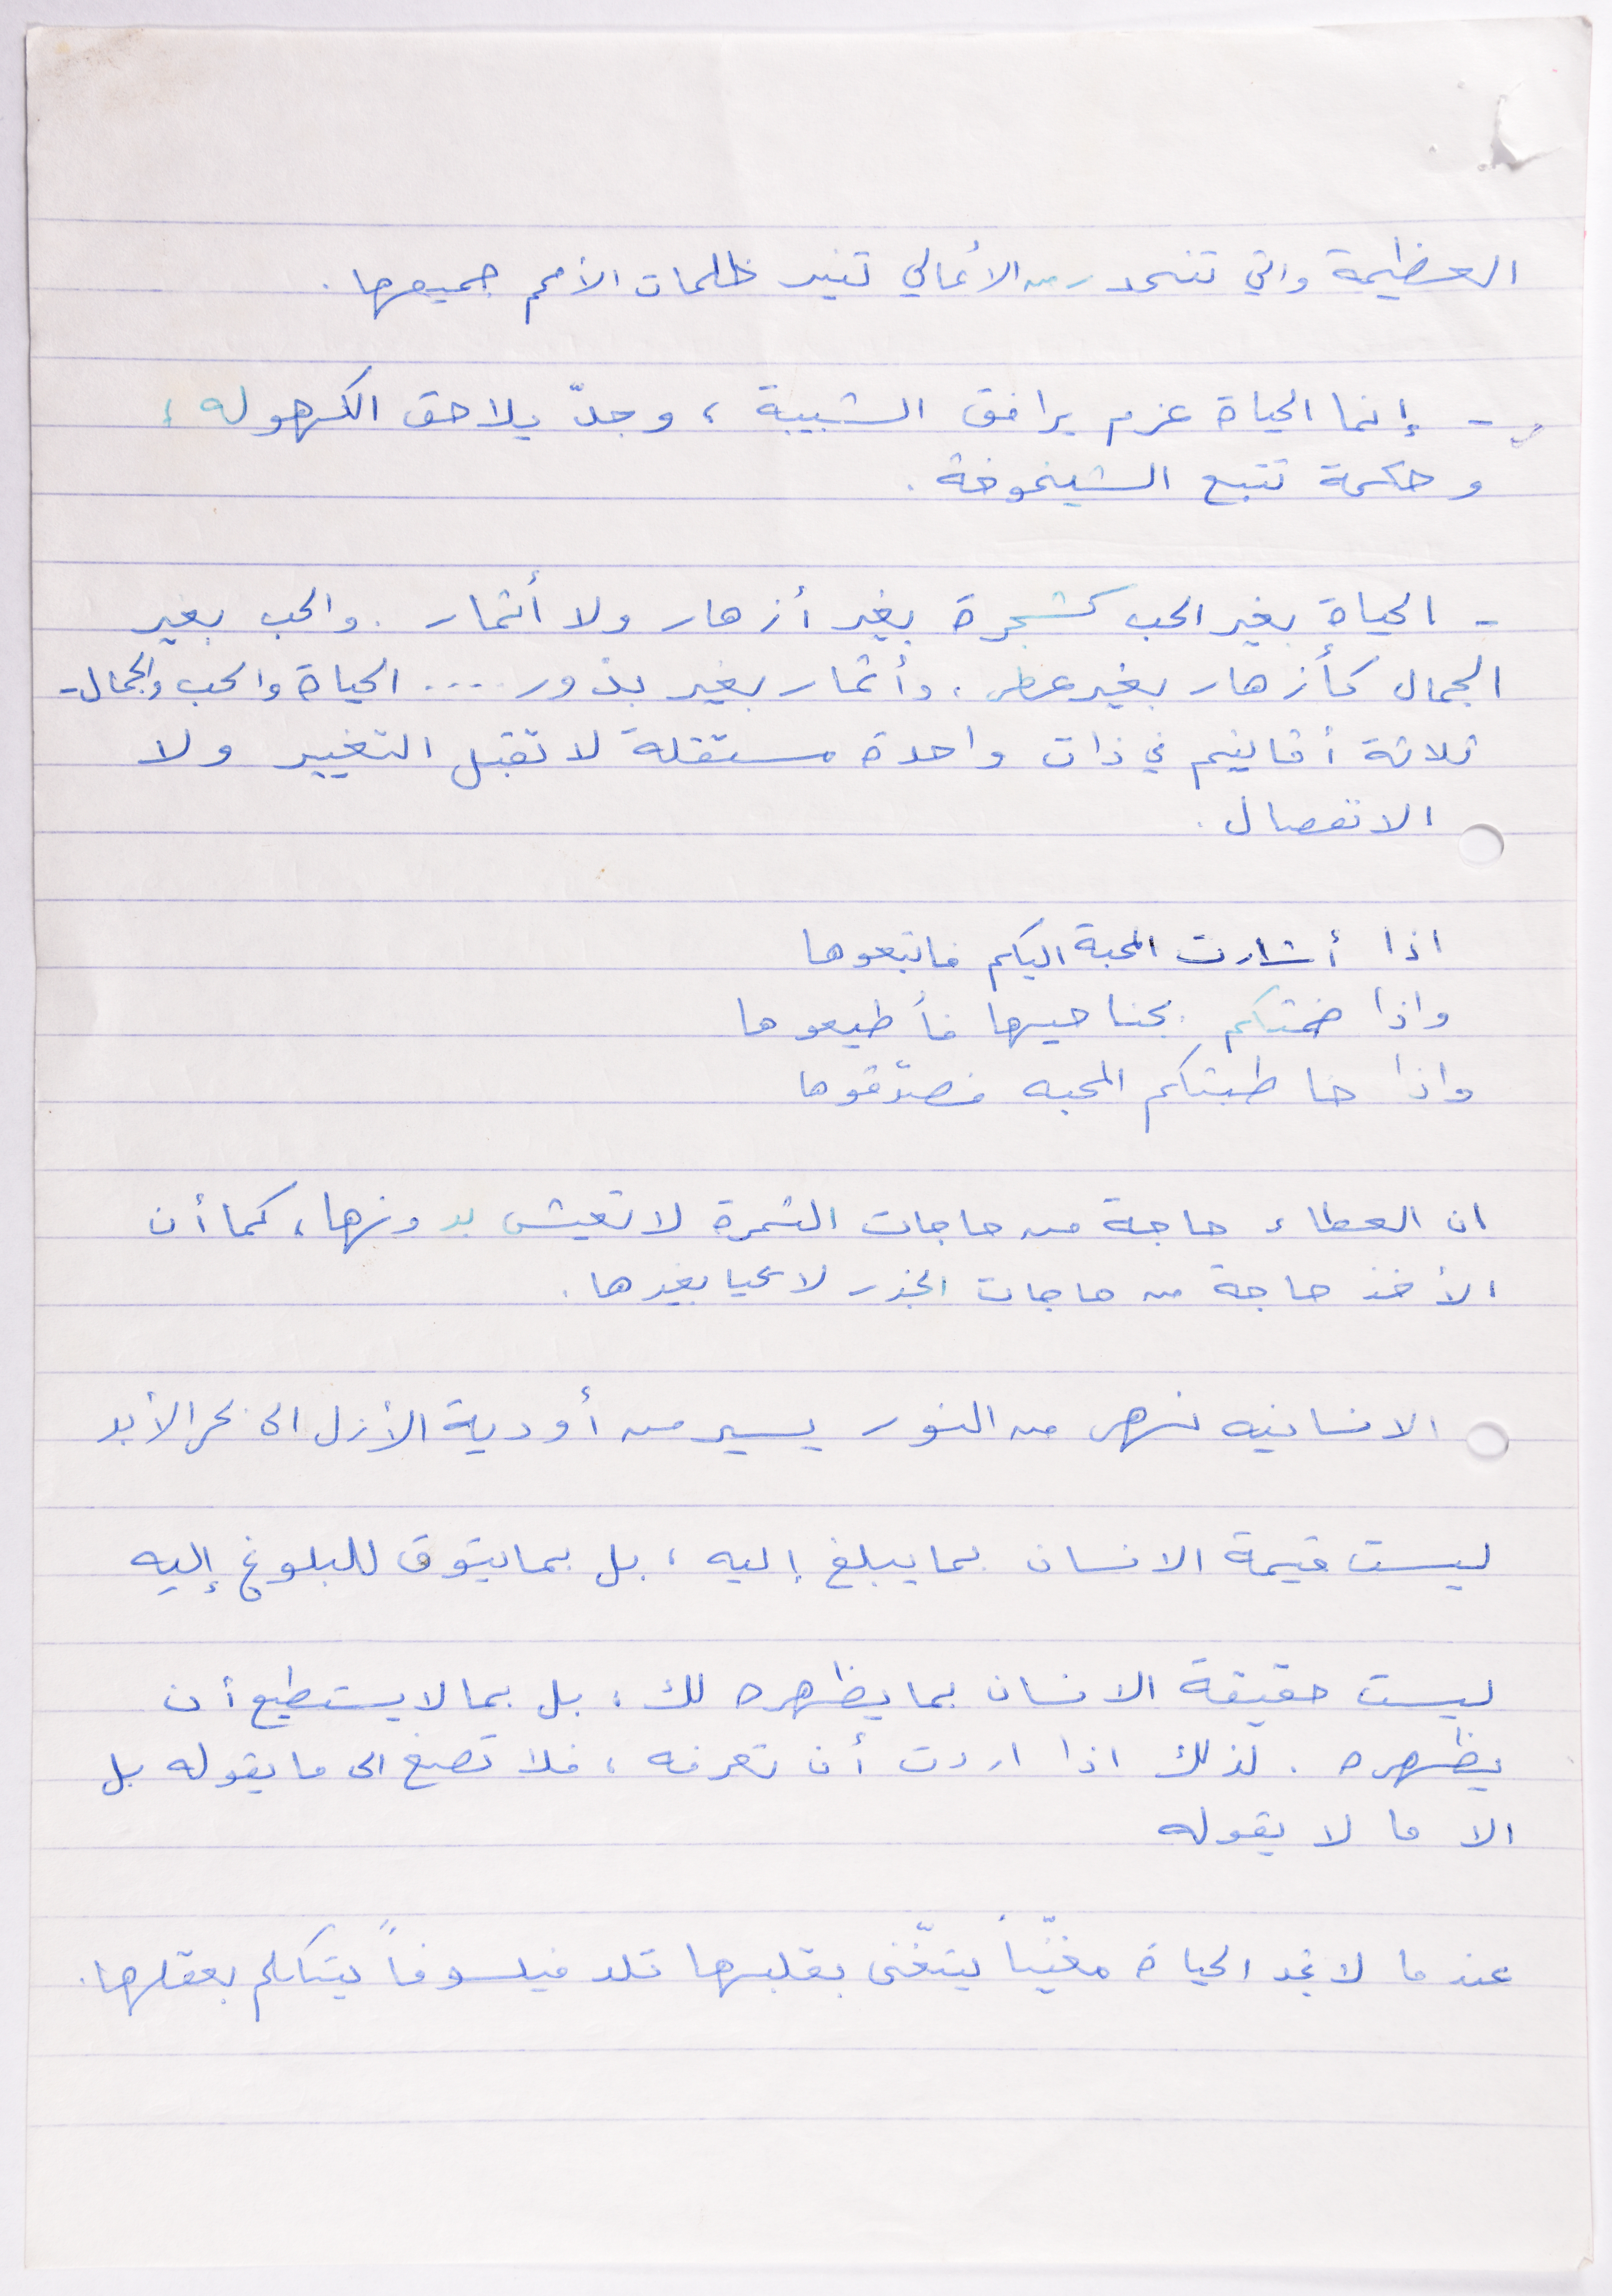 العظيمة والتي تنحدر من الأعالي تنير ظلمات الأمم جميعها .
- إنما الحياة عزم يرافق الشبيبة ، وجدّ يلاحق الكهوله ،
وحكمة تتبع الشيخوخة .
- الحياة بغير الحب كشجرة بغير أزهار ولا أثمار . والحب بغير
الجمال كأزهار بغير عطر . وأثمار بغير بذور .... الحياة والحب والجمال -
ثلاثة أقانيم في ذات واحدة مستقلة لا تقبل التغيير ولا
الانفصال .
اذا أشارت المحبة اليكم فاتبعوها
واذا ضمتكم بجناحيها فأطيعوها
واذا خاطبتكم المحبه فصدّقوها
ان العطاء حاجة من حاجات الثمرة لا تعيش بدونها ، كما أن
الأخذ حاجة من حاجات الجذر لا يحيا بغيرها .
الانسانيه نهر من النور يسير من أودية الأزل الى بحر الأبد
ليست قيمة الانسان بما يبلغ إليه ، بل بما يتوق للبلوغ إليه
ليست حقيقة الانسان بما يظهره لك ، بل بما لا يستطيع أن
يظهره . لذلك اذا اردت أن تعرفه ، فلا تصغ الى ما يقوله بل
الا ما لا يقوله
عندما لا تجد الحياة مغنّياً يتغّنى بقلبها تلد فيلسوفاً يتكلم بعقلها .